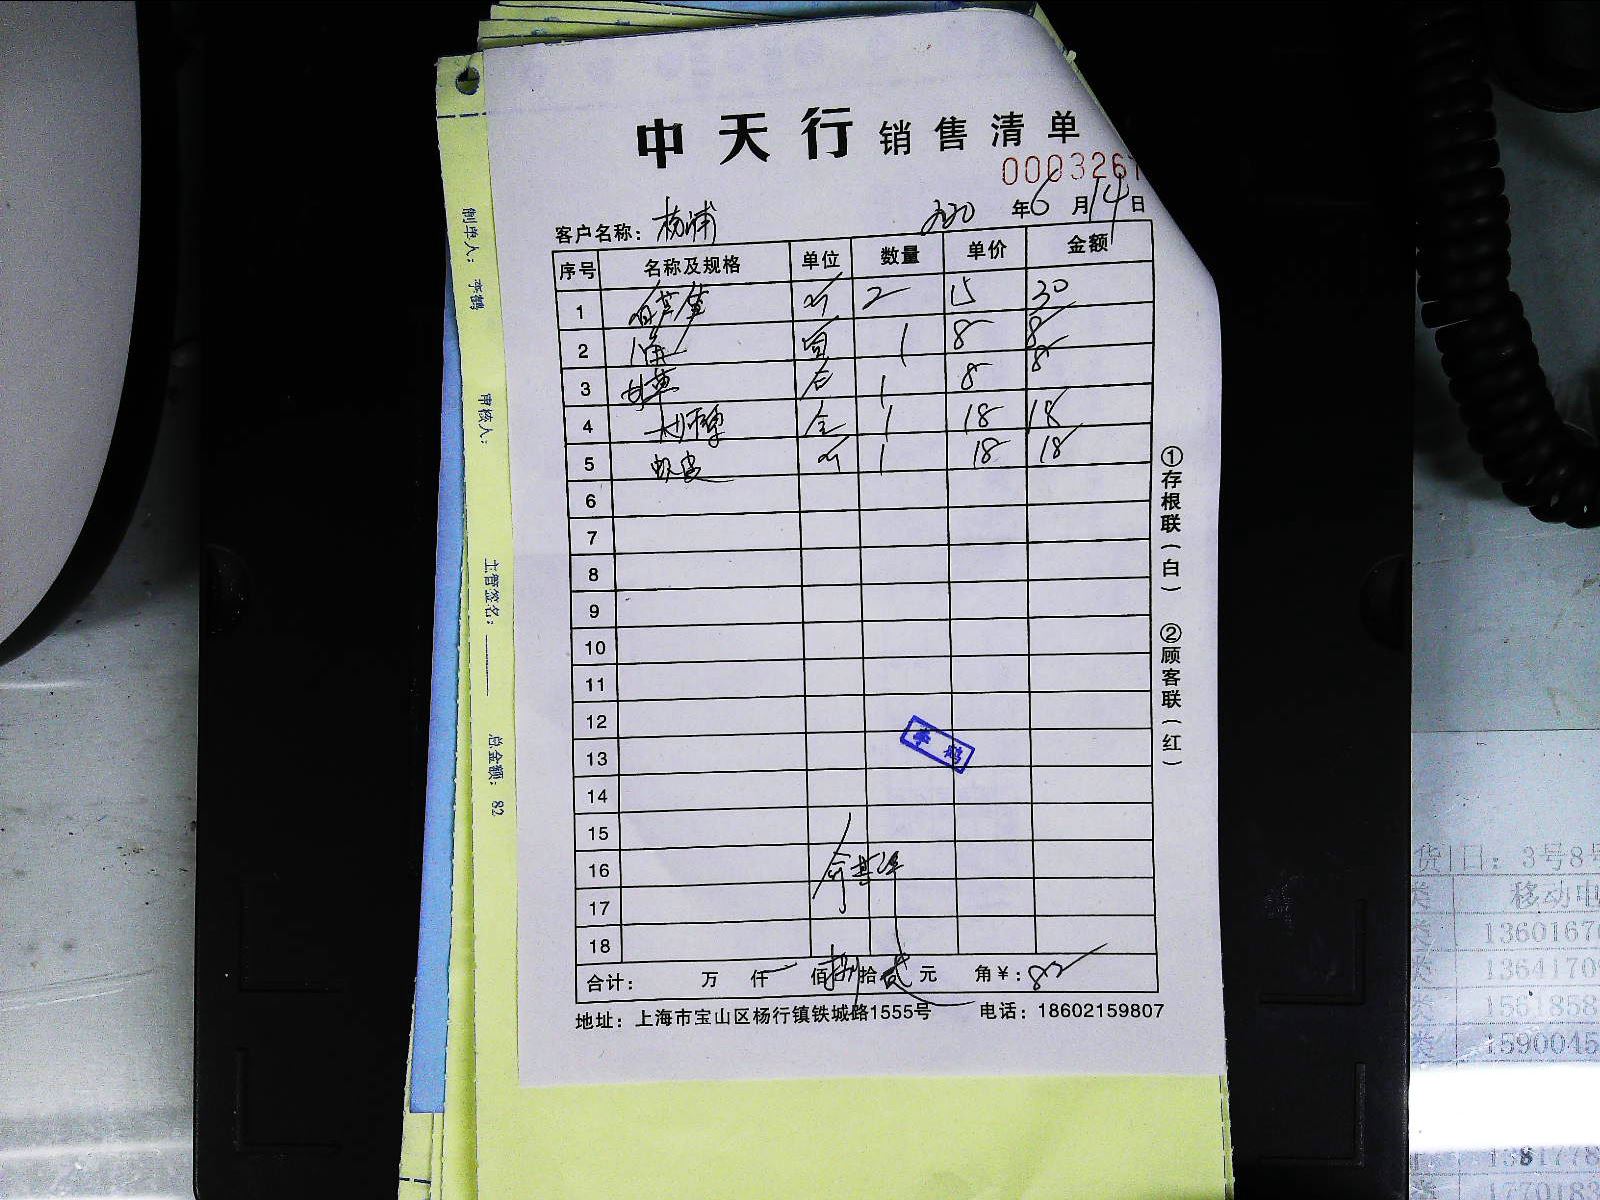 中天行 销售清单
000326
客户名称: 杨浦 2020 年 6 月 14 日
序号 名称及规格 单位 数量 单价 金额
1 白芦笋 听 2 15 30
2 1 8 8
3 甘草 1 8 8
4 1 18 18
5 虾皮 听 1 18 18
6
7
8
9
10
11
12
13
14
15
16
17
18
李鹤
合计: 万 仟 佰 捌 拾 贰 元 角 ¥: 82
地址: 上海市宝山区杨行镇铁城路1555号 电话: 18602159807
①存根联(白) ②顾客联(红)
制单人: 李鹤 审核人: 主管签名: 总金额: 82
货日: 3号8号
类 移动电
类 1360167
类 1364170
类 1561858
类 1590045
1381778
1770183